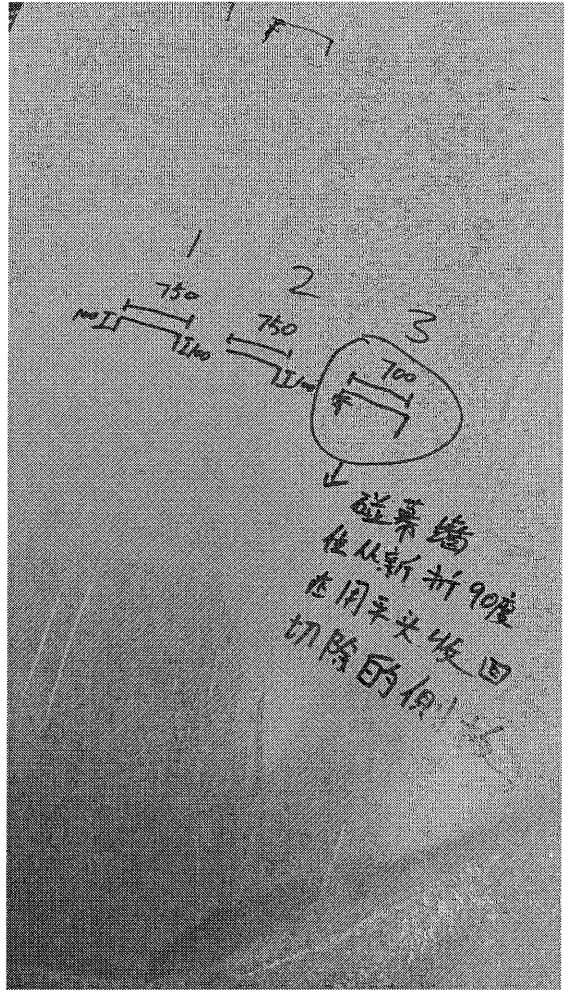 1
2
3
750
100
100
750
100
700
碰幕墙
位从新折90度
在用平头收回
切除的侧